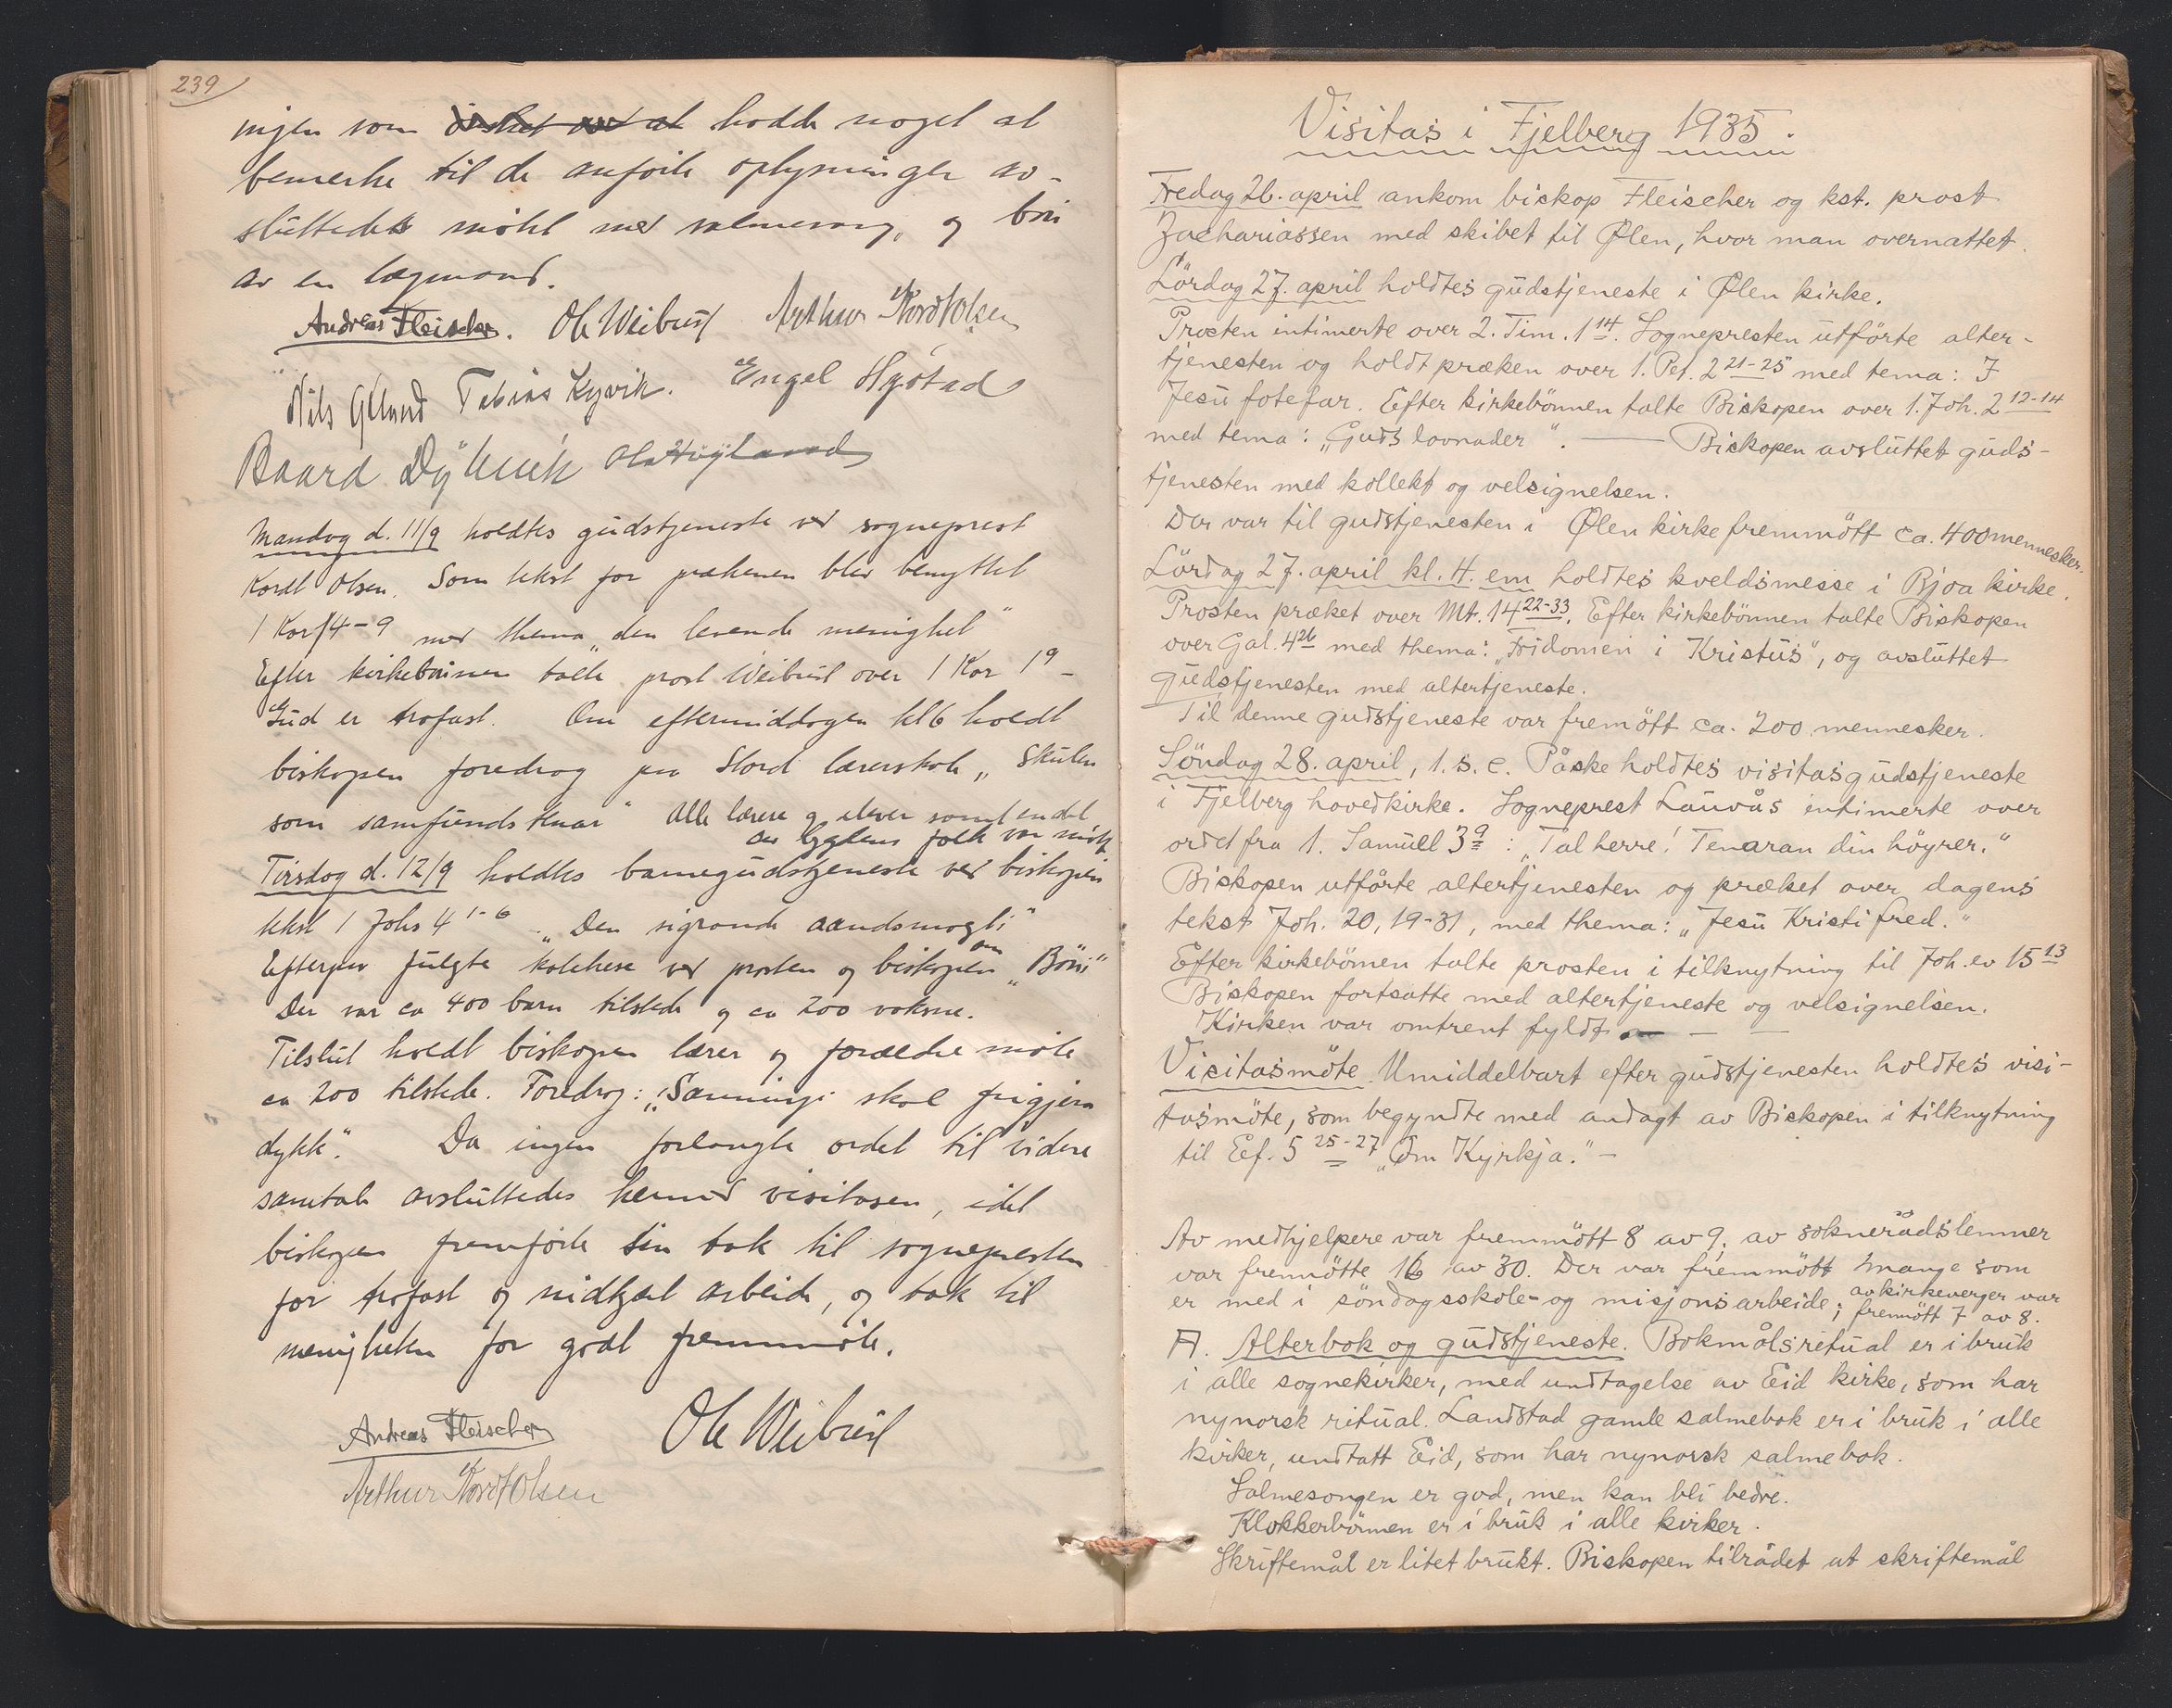 239
ingen som ønsket ord at hadde noget at
bemerke til de anførte oplysninger av-
sluttedes møtet med salmesang, og bøn
av en lægmand.
Andreas Fleischer. Ole Weibust Arthur Kordt Olsen
Nils Tobias Kyvik. Engel Hystad
Baard Ola Høyland
Mandag d. 11/9 holdtes gudstjeneste ved sogneprest
Kordt Olsen. Som tekst for prækenen blev benyttet
1 Kor 1 4-9 med thema „den levende menighet"
Efter kirkebønnen talte prost Weibust over 1 Kor 1 9 -
Gud er trofast. Om eftermiddagen kl 6 holdt
biskopen foredrag paa Stord lærerskole „Skulen
som samfundsknar" Alle lærere og elever samt endel
av bygdens folk var møtt
Tirsdag d. 12/9 holdtes barnegudstjeneste ved biskopen
tekst 1 Johs 4 1-6 „Den sigrande aandsmagti"
Efterpaa fulgte katekese ved prosten og biskopen om „Bøn"
Der var ca 400 barn tilstede og ca 200 voksne.
Tilslut holdt biskopen lærer og forældre møte
ca 200 tilstede. Foredrag: „Sanningi skal frigjera
dykk". Da ingen forlangte ordet til videre
samtale avsluttedes hermed visitasen, idet
biskopen fremførte sin tak til sognepresten
for trofast og nidkjært arbeide, og tak til
menigheten for godt fremmøte.
Andreas Fleischer Ole Weibust
Arthur Kordt Olsen
Visitas i Fjelberg 1935.
Fredag 26. april ankom biskop Fleischer og kst. prost
Zachariassen med skibet til Ølen, hvor man overnattet.
Lördag 27. april holdtes gudstjeneste i Ølen kirke.
Prosten intimerte over 2. Tim. 1 14. Sognepresten utförte alter-
tjenesten og holdt præken over 1. Pet. 2 21-25 med tema: I
Jesu fotefar. Efter kirkebönnen talte Biskopen over 1. Joh. 2 12-14
med tema: „Guds lovnader". — Biskopen avsluttet guds-
tjenesten med kollekt og velsignelsen.
Der var til gudstjenesten i Ølen kirke fremmött ca. 400 mennesker.
Lördag 27. april kl. 4. em holdtes kveldsmesse i Bjoa kirke.
Prosten præket over Mt. 14 22-33. Efter kirkebönnen talte Biskopen
over Gal. 4 26 med thema: „Fridomen i Kristus", og avsluttet
gudstjenesten med altertjeneste.
Til denne gudstjeneste var fremött ca. 200 mennesker.
Söndag 28. april, 1. s. e. Påske holdtes visitasgudstjeneste
i Fjelberg hovedkirke. Sogneprest Lauvås intimerte over
ordet fra 1. Samuel 3 9: „Tal herre! Tenaran din höyrer."
Biskopen utförte altertjenesten og præket over dagens
tekst Joh. 20, 19-31, med thema: „Jesu Kristi fred."
Efter kirkebönnen talte prosten i tilknytning til Joh. ev 15 13
Biskopen fortsatte med altertjeneste og velsignelsen.
Kirken var omtrent fyldt. — —
Visitasmöte. Umiddelbart efter gudstjenesten holdtes visi-
tasmöte, som begyndte med andagt av Biskopen i tilknytning
til Ef. 5 25-27 „Om Kyrkja." -
Av medhjelpere var fremmött 8 av 9, av soknerådslemmer
var fremmötte 16 av 30. Der var fremmött mange som
er med i söndagsskole- og misjonsarbeide; av kirkeverger var
fremött 7 av 8.
A. Alterbok og gudstjeneste. Bokmålsritual er i bruk
i alle sognekirker, med undtagelse av Eid kirke, som har
nynorsk ritual. Landstad gamle salmebok er i bruk i alle
kirker, undtatt Eid, som har nynorsk salmebok.
Salmesongen er god, men kan bli bedre.
Klokkerbönnen er i bruk i alle kirker.
Skriftemål er litet brukt. Biskopen tilrådet at skriftemål